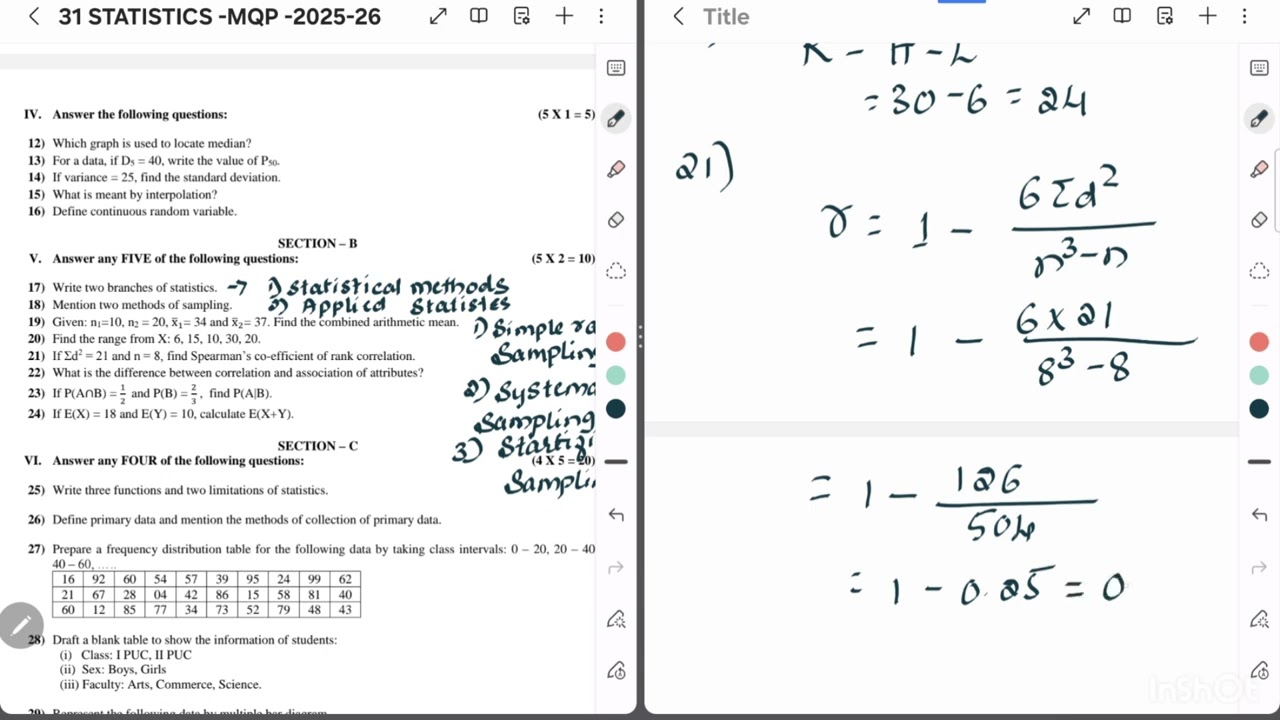 31 STATISTICS -MQP -2025-26
IV. Answer the following questions: (5 X 1 = 5)
12) Which graph is used to locate median?
13) For a data, if D₅ = 40, write the value of P₅₀.
14) If variance = 25, find the standard deviation.
15) What is meant by interpolation?
16) Define continuous random variable.
SECTION – B
V. Answer any FIVE of the following questions: (5 X 2 = 10)
17) Write two branches of statistics. → 1) Statistical methods
18) Mention two methods of sampling. 2) Applied Statistes
19) Given: n₁=10, n₂ = 20, x̄₁= 34 and x̄₂= 37. Find the combined arithmetic mean. 1) Simple ra
20) Find the range from X: 6, 15, 10, 30, 20.
Samplin
21) If Σd² = 21 and n = 8, find Spearman's co-efficient of rank correlation.
22) What is the difference between correlation and association of attributes?
2) Systema
23) If P(A∩B) = 1/2 and P(B) = 2/3, find P(A|B).
24) If E(X) = 18 and E(Y) = 10, calculate E(X+Y).
Sampling
SECTION – C
3) Startif
VI. Answer any FOUR of the following questions: (4 X 5 = 20)
Sampli
25) Write three functions and two limitations of statistics.
26) Define primary data and mention the methods of collection of primary data.
27) Prepare a frequency distribution table for the following data by taking class intervals: 0 – 20, 20 – 40
40 – 60, .....
16 92 60 54 57 39 95 24 99 62
21 67 28 04 42 86 15 58 81 40
60 12 85 77 34 73 52 79 48 43
28) Draft a blank table to show the information of students:
(i) Class: I PUC, II PUC
(ii) Sex: Boys, Girls
(iii) Faculty: Arts, Commerce, Science.
29) Represent the following data by multiple bar diagram
Title
R - H - L
= 30 - 6 = 24
21)
r = 1 - 6Σd²/n³-n
= 1 - 6×21/8³-8
= 1 - 126/504
= 1 - 0.25 = 0
InShOt